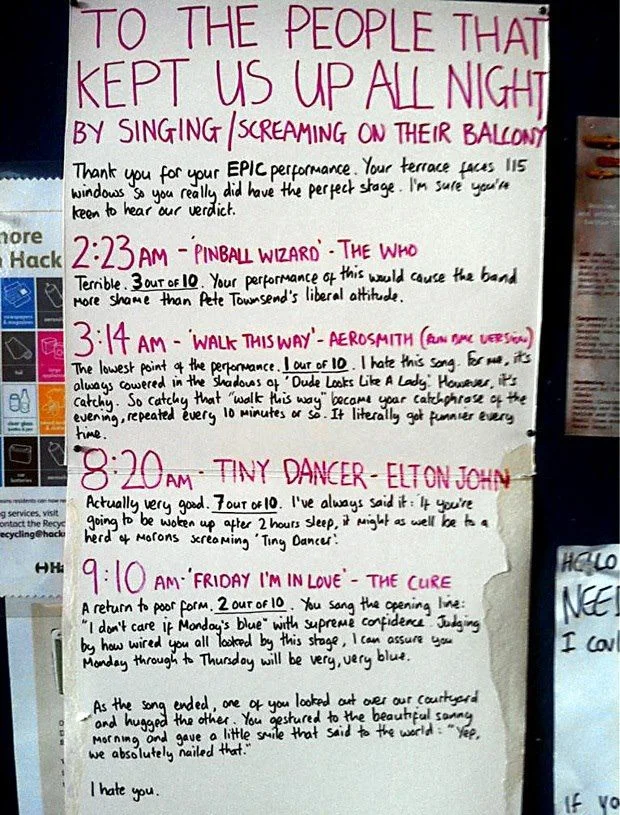 TO THE PEOPLE THAT
KEPT US UP ALL NIGHT
BY SINGING/SCREAMING ON THEIR BALCONY
Thank you for your EPIC performance. Your terrace faces 115
windows so you really did have the perfect stage. I'm sure you're
keen to hear our verdict.
2:23 AM - 'PINBALL WIZARD' - THE WHO
Terrible. 3 OUT OF 10. Your performance of this would cause the band
more shame than Pete Townsend's liberal attitude.
3:14 AM - 'WALK THIS WAY' - AEROSMITH (RUN DMC VERSION)
The lowest point of the performance. 1 OUT OF 10. I hate this song. For me, it's
always cowered in the shadows of 'Dude Looks Like A Lady'. However, it's
catchy. So catchy that "walk this way" became your catchphrase of the
evening, repeated every 10 minutes or so. It literally got funnier every
time.
8:20 AM - TINY DANCER - ELTON JOHN
Actually very good. 7 OUT OF 10. I've always said it: 'If you're
going to be woken up after 2 hours sleep, it might as well be to a
herd of morons screaming 'Tiny Dancer'.
9:10 AM - 'FRIDAY I'M IN LOVE' - THE CURE
A return to poor form. 2 OUT OF 10. You sang the opening line:
"I don't care if Monday's blue" with supreme confidence. Judging
by how wired you all looked by this stage, I can assure you
Monday through to Thursday will be very, very blue.
As the song ended, one of you looked out over our courtyard
and hugged the other. You gestured to the beautiful sunny
morning and gave a little smile that said to the world: "Yep,
we absolutely nailed that."
I hate you.
more
Hack
newspapers
& magazines
services, visit
contact the Recyc
recycling@hack
HELLO
NEE
I cou
If yo